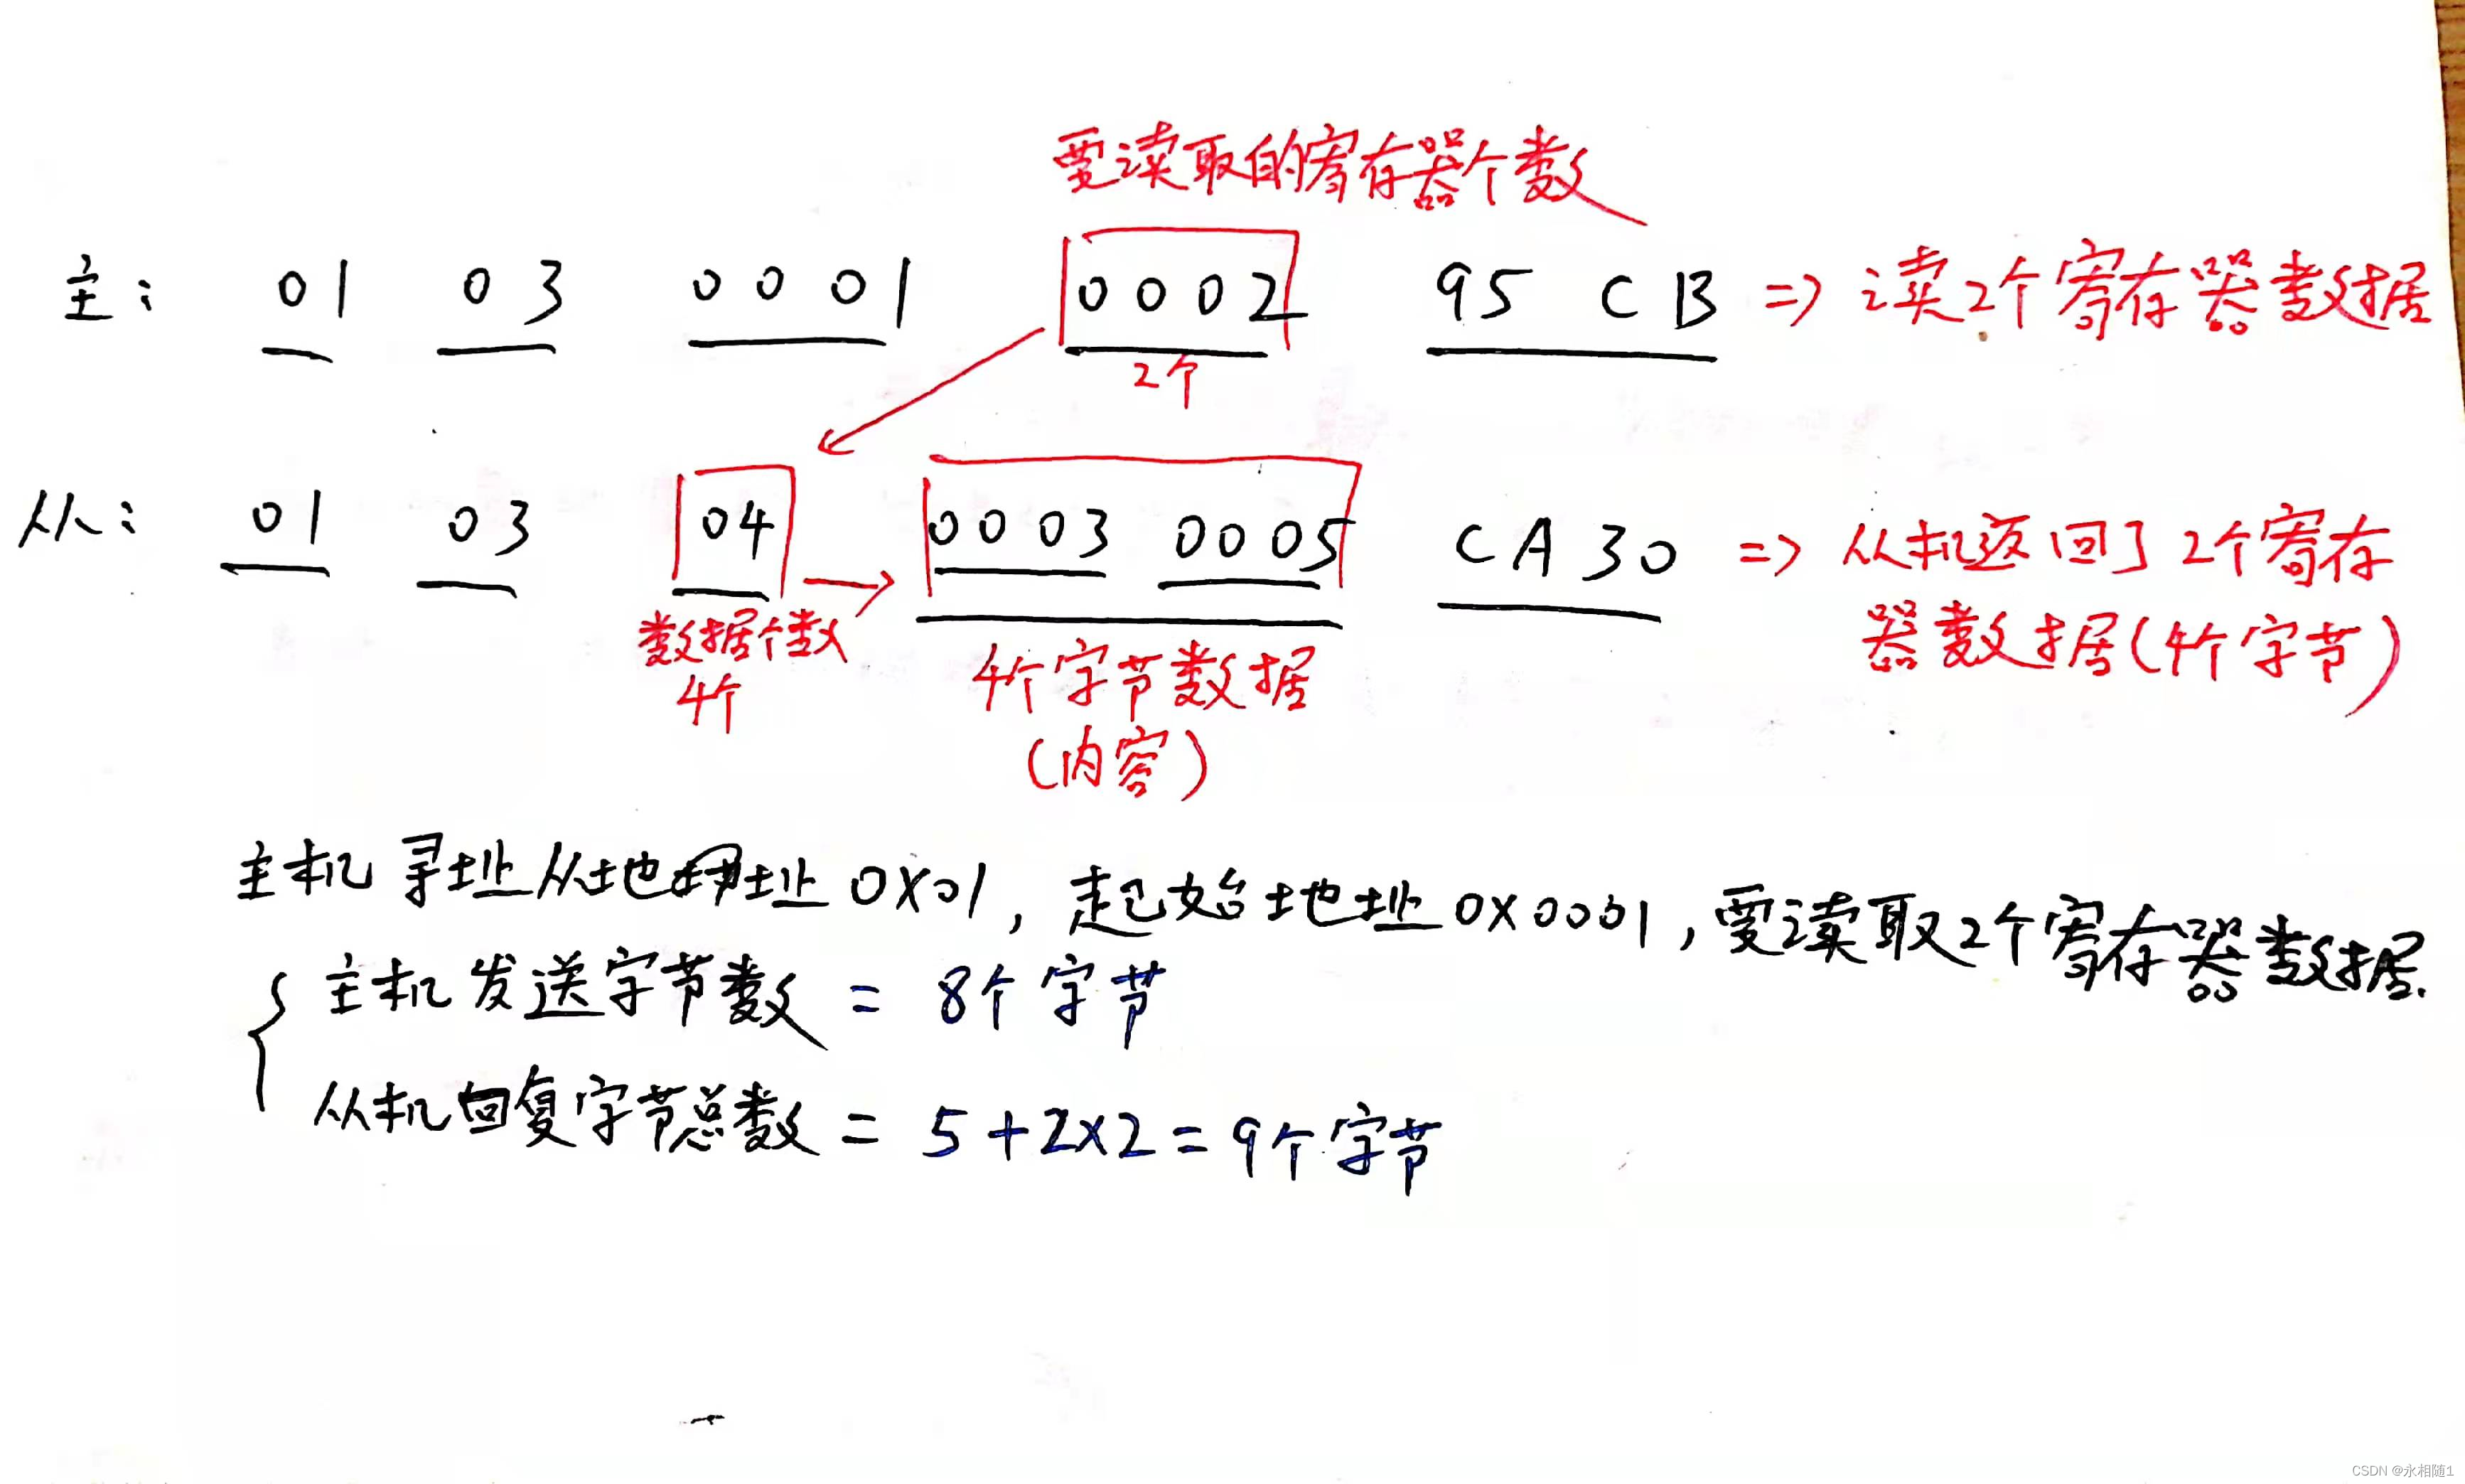 要读取的寄存器个数
主: 01 03 0001 0002 95 CB => 读2个寄存器数据
2个
从: 01 03 04 0003 0005 CA30 => 从机返回了2个寄存
器数据(4个字节)
数据个数
4个
4个字节数据
(内容)
主机寻址从地址0X01, 起始地址0X0001, 要读取2个寄存器数据.
主机发送字节数 = 8个字节
从机回复字节总数 = 5+2x2=9个字节
CSDN @永相随1